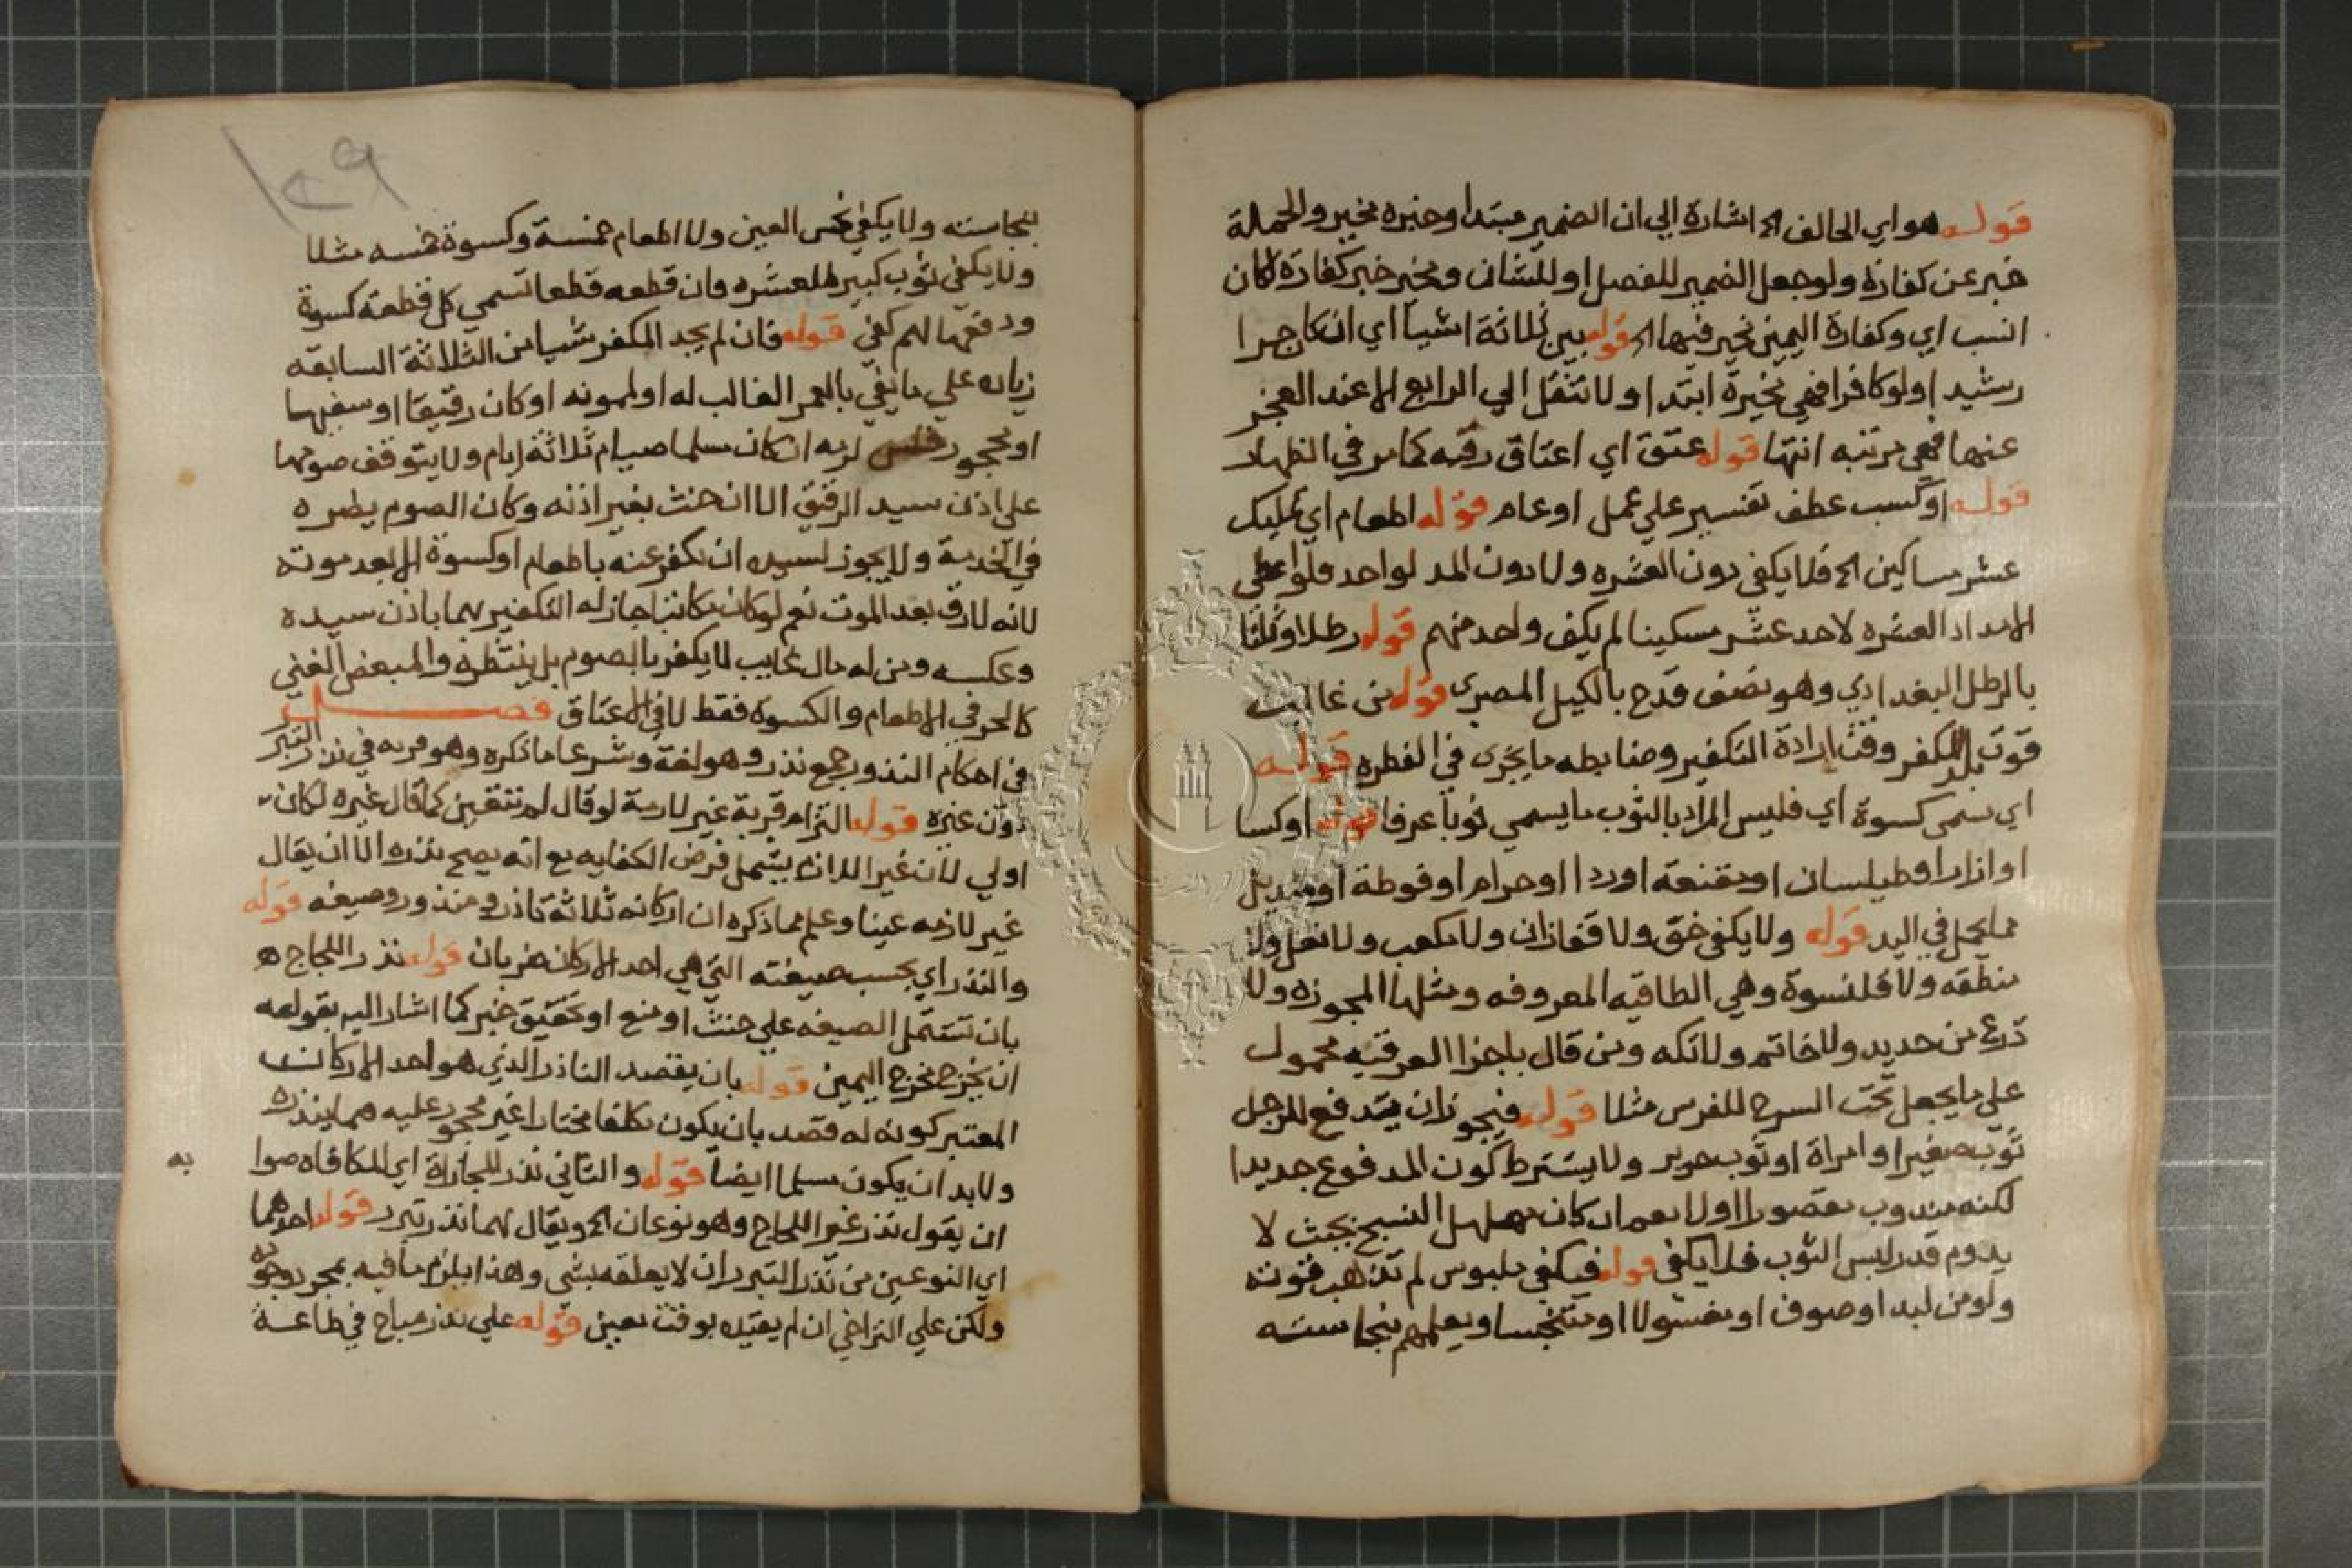 قوله هو اي الحالف الخ اشارة الي ان الضمير مبتدا وخبره مخير والجملة
خبر عن كفارة ولو جعل الضمير للفصل او للشان ومخير خبر كفارة لكان
انسب اي وكفارة اليمين مخير فيها الخ قوله بين ثلاثة اشيا اي ان كان حرا
رشيدا ولو كافرا فهي مخيرة ابتدا ولا تنتقل الي الرابع الا عند العجز
عنها فهي مرتبه انتها قوله عتق اي اعتاق رقبه كما مر في الظهار
قوله او كسب عطف تفسير علي عمل او عام قوله اطعام اي تمليك
عشر مساكين الخ فلا يكفي دون العشره ولا دون المد لواحد فلو اعطي
الامداد العشره لاحد عشر مسكينا لم يكف واحد منهم قوله رطلا وثلثا
بالرطل البغدادي وهو نصف قدح بالكيل المصري قوله من غالب
قوت بلد المكفر وقت ارادة التكفير وضابطه ما يجزي في الفطره قوله
اي يسمي كسوة اي فليس المراد بالثوب ما يسمي ثوبا عرفا قوله او كسا
او ازار او طيلسان او مقنعة او ردا او حرام او فوطة او منديل
مما يحمل في اليد قوله ولا يكفي خف ولا قفازان ولا مكعب ولا نعل ولا
منطقه ولا قلنسوة وهي الطاقيه المعروفه ومثلها المجوزه ولا
درع من حديد ولا خاتم ولا تكه ومن قال باجزا العرقيه محمول
علي ما يجعل تحت السرج للفرس مثلا قوله فيجوز ان يدفع للرجل
ثوب صغير او امراة او ثوب حرير ولا يشترط كون المدفوع جديدا
لكنه مندوب مقصورا او لا نعم ان كان مهلهل النسج بحيث لا
يدوم قدر لبس الثوب فلا يكفي قوله فيكفي ملبوس لم تذهب قوته
ولو من لبد او صوف او مغسولا او متنجسا ويعلمهم بنجاسته
١٤٩
بنجاسته ولا يكفي نجس العين ولا اطعام خمسة وكسوة خمسه مثلا
ولا يكفي ثوب كبير للعشره فان قطعه قطعا تسمي كل قطعة كسوة
ودفعها لهم كفي قوله فان لم يجد المكفر شيا من الثلاثة السابقه
زياده علي ما يفي بالعمر الغالب له او لمونه او كان رقيقا او سفيها
او محجور فلس لزمه ان كان مسلما صيام ثلاثة ايام ولا يتوقف صومها
علي اذن سيد الرقيق الا ان حنث بغير اذنه وكان الصوم يضره
في الخدمة ولا يجوز لسيده ان يكفر عنه باطعام او كسوة الا بعد موته
لانه لا رق بعد الموت نعم لو كان مكاتبا جاز له التكفير بهما باذن سيده
وعكسه ومن له مال غايب لا يكفر بالصوم بل ينتظره والمبعض الغني
كالحر في الاطعام والكسوة فقط لا في الاعتاق فصل
في احكام النذور جمع نذر وهو لغة وشرعا ما ذكره وهو قربه في نذر التبرر
دون غيره قوله التزام قربة غير لازمة لو قال لم تتعين كما قال غيره لكان
اولي لان غير اللازم يشمل فرض الكفايه مع انه يصح نذره الا ان يقال
غير لازمه عينا وعلم مما ذكره ان اركانه ثلاثة ناذر ومنذور وصيغه قوله
والنذر اي بحسب صيغته التي هي احد الاركان ضربان قوله نذر اللجاج هو
بان تشتمل الصيغه علي حنث او منع او تحقيق خبر كما اشار اليه بقوله
ان يخرج مخرج اليمين قوله بان يقصد الناذر الذي هو احد الاركان
المعتبر كونه له قصد بان يكون مكلفا مختارا غير محجور عليه فيما ينذره
ولا بد ان يكون مسلما ايضا قوله والثاني نذر المجازاة اي المكافاه صوابه
ان يقول نذر غير اللجاج وهو نوعان الخ ويقال لهما نذر تبرر قوله احدهما
اي النوعين من نذر التبرر ان لا يعلقه بشي وهذا يلزم ما فيه بمجرد وجوده
ولكن علي التراخي ان لم يقيده بوقت معين قوله علي نذر مباح في طاعة